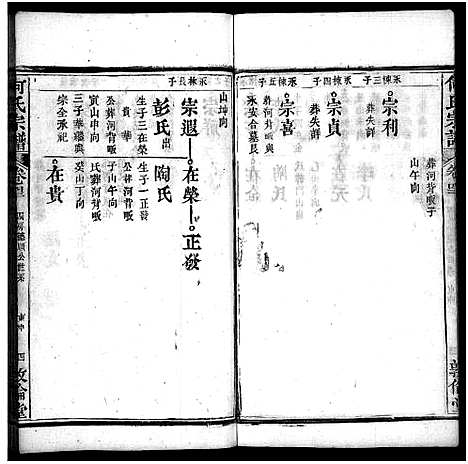 何氏宗譜
葬河背畈子
山午向
承棟三子
宗利
葬失詳
承棟四子
宗貞
葬失詳
承棟五子
宗喜
葬河背畈與
承安合墓
山坤向
承棟長子
宗選
彭氏
生子三在榮
貴華
公葬河背畈
寅山申向
三子華繼與
宗全承祀
在榮
陶氏
生子一正發
公葬河背畈
子山午向
氏葬河背畈
癸山丁向
在貴
正發
何氏宗譜
敦倫堂